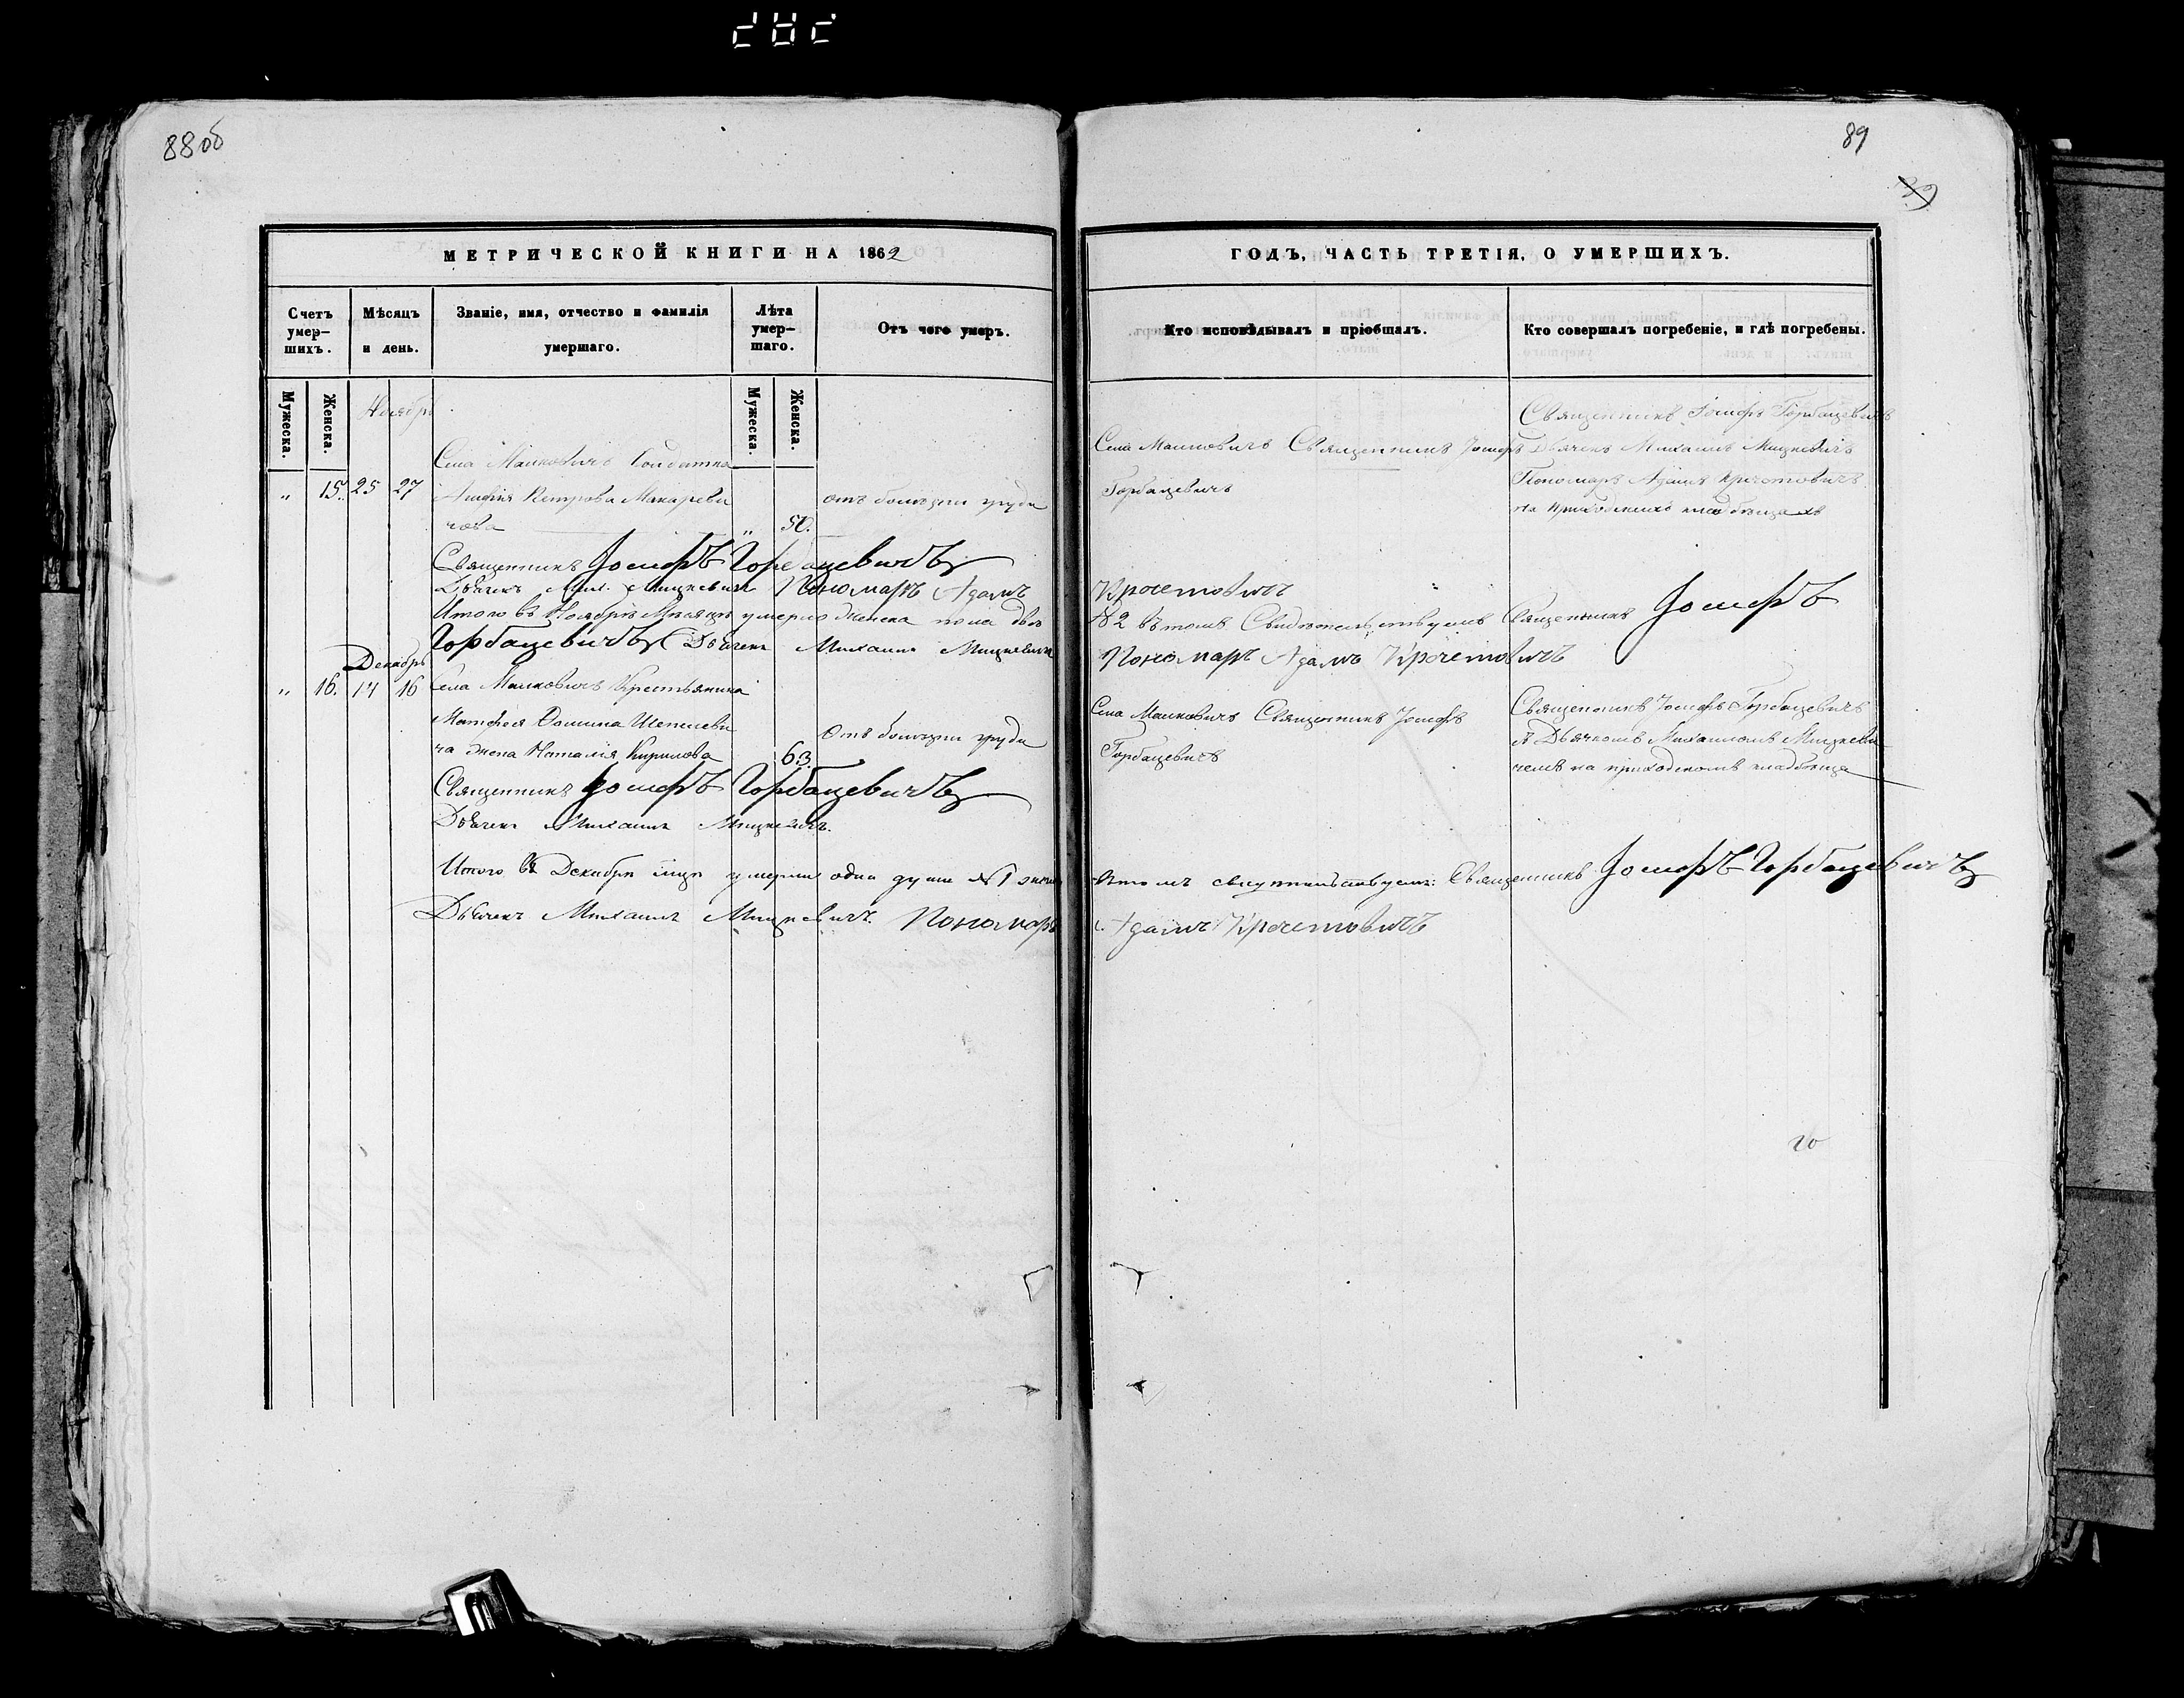 88 об
89
39
МЕТРИЧЕСКОЙ КНИГИ НА 1862
ГОДЪ, ЧАСТЬ ТРЕТІЯ, О УМЕРШИХЪ.
Счетъ умер-шихъ.
Мѣсяцъ и день.
Званіе, имя, отчество и фамилія умершаго.
Лѣта умер-шаго.
Отъ чего умеръ.
Кто исповѣдывалъ и пріобщалъ.
Кто совершалъ погребеніе, и гдѣ погребены.
Мужеска.
Женска.
Мужеска.
Женска.
Ноябрь
„ 15. 25 27
Села Малковичъ Солдатка
Петрова Макареви
чова
„ 50.
отъ болѣзни груди
Села Малковичъ Священникъ Іосифъ
Горбацевичъ
Священникъ Іосифъ Горбацевичъ
Дьячекъ Михаилъ Мицкевичъ
Пономарь Адамъ Кречетовичъ
на приходскихъ кладбищахъ
Священникъ Іосифъ Горбацевичъ
Дьячекъ Мих. Мицкевичъ Пономарь Адамъ
Кречетовичъ
Итого въ Ноябрѣ Мѣсяцѣ умерло женска пола двѣ
№ 2 въ томъ Свидѣтельствуемъ Священникъ Іосифъ
Горбацевичъ Дьячекъ Михаилъ Мицкевичъ
Пономарь Адамъ Кречетовичъ
Декабрь
„ 16. 14 16
Села Малковичъ Крестьянина
Матфея Фомина
ча жена Наталія Кирилова
63.
Отъ болѣзни груди
Села Малковичъ Священникъ Іосифъ
Горбацевичъ
Священникъ Іосифъ Горбацевичъ
съ Дьячкомъ Михаиломъ Мицкеви
чемъ на приходскомъ кладбищѣ
Священникъ Іосифъ Горбацевичъ
Дьячекъ Михаилъ Мицкевичъ.
Итого въ Декабрѣ мцѣ умерла одна душа №1 женска
въ томъ свидѣтельствуемъ: Священникъ Іосифъ Горбацевичъ
Дьячекъ Михаилъ Мицкевичъ. Пономарь
Адамъ Кречетовичъ